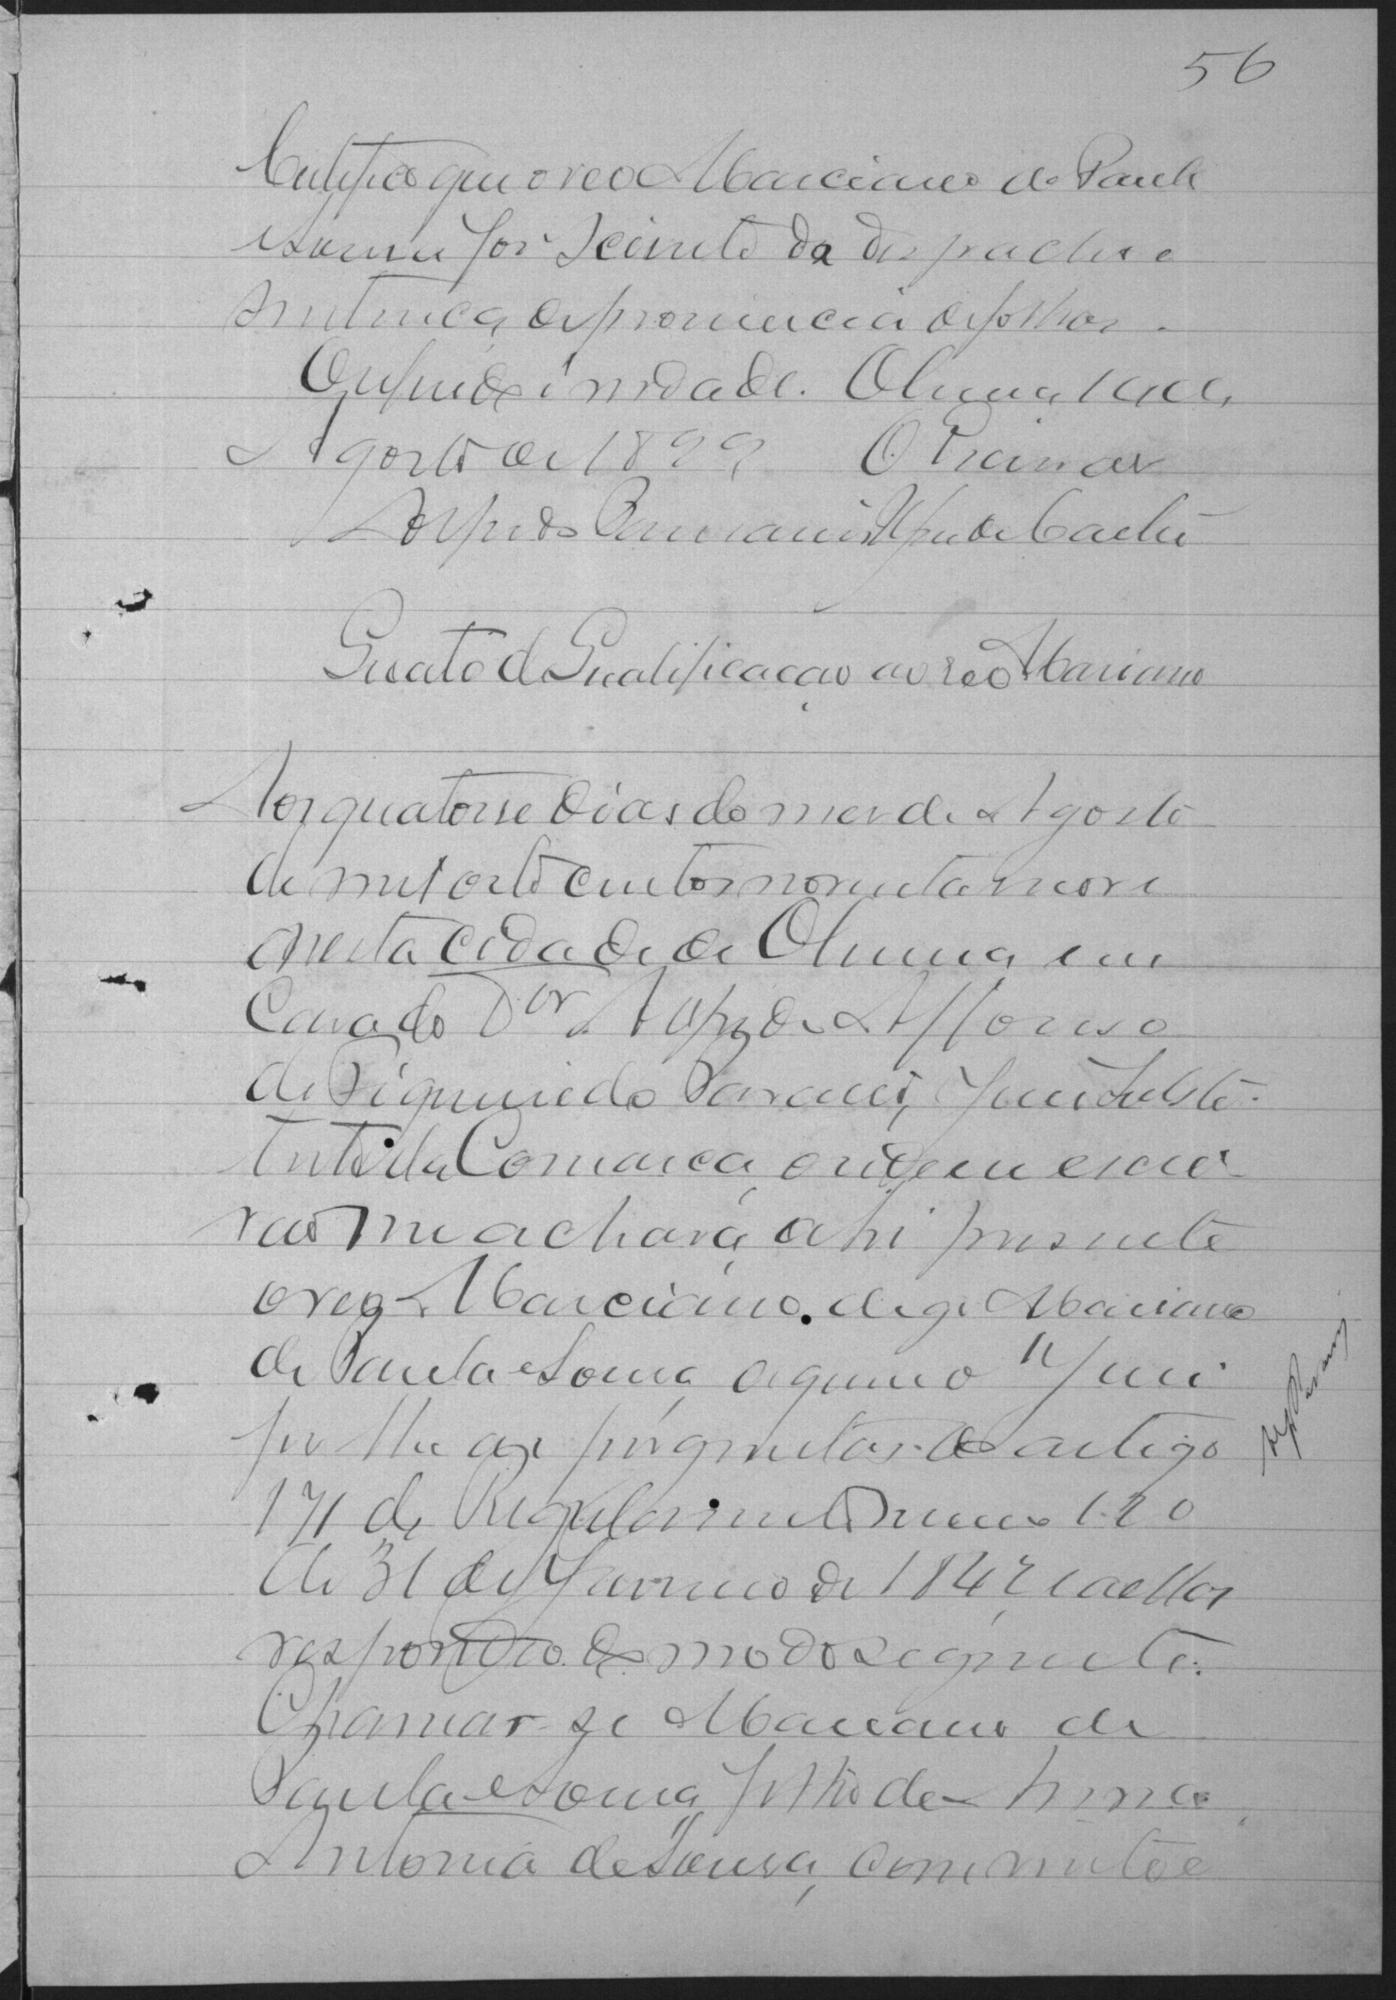 56
Certifico que o reo Marciano de Paula
e Sousa foi sciente do despacho e
sentença de pronuncia de folhas.
O referido é verdade. Olinda, 14 de
Agosto de 1899 O Escrivão
Alfredo
Auto de Qualificação ao reo Marciano
Aos quatorse dias do mes de Agosto
de mil oito centos noventa nove
nesta cidade de Olinda em
Casa do Dor Alfredo Affonso
de Figueiredo Paranhos, Juiz Substi-
tuto da Comarca, onde eu escri-
vão me achava, ahi presente
o reo Marciano. digo Marciano
de Paula e Sousa, a quem o Juiz
fez lhe as perguntas do artigo
171 do Regulamento numero 120
de 31 de Janeiro de 1842 e a ellas
respondeo do modo seguinte:
Chamar-se Marciano de
Paula e Sousa, filho de Anna
Antonia de Sousa, com vinte e